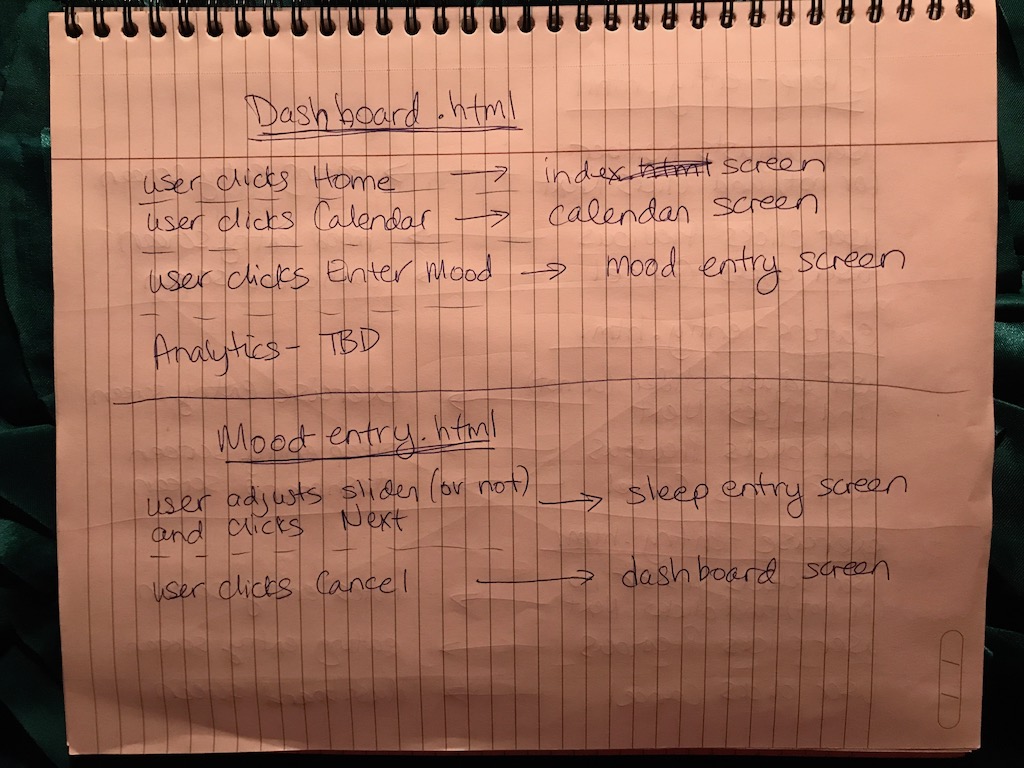 Dashboard.html
user clicks Home → index screen
user clicks Calendar → calendar screen
user clicks Enter Mood → mood entry screen
Analytics - TBD
Mood entry.html
user adjusts slider (or not) → sleep entry screen
and clicks Next
user clicks Cancel → dashboard screen